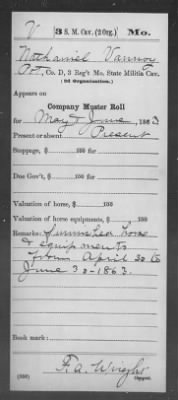 V 3 S. M. Cav. (2 Org.) Mo.
Nathaniel Vannoy
Pvt., Co. D, 3 Reg't Mo. State Militia Cav.
(2d Organization.)
Appears on
Company Muster Roll
for May & June, 1863
Present or absent Present
Stoppage, $ 100 for
Due Gov't, $ 100 for
Valuation of horse, $ 100
Valuation of horse equipments, $ 100
Remarks: Furnished horse
& equipments
from April 30 to
June 30-1863.
Book mark:
F. A. Wright
(360) Copyist.